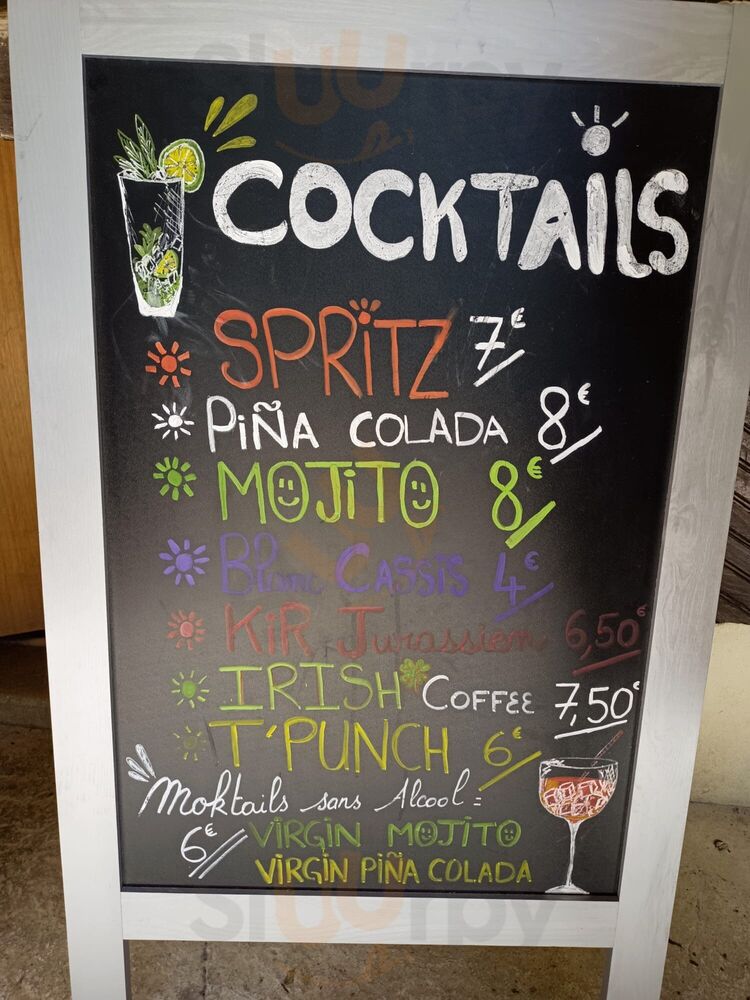 Sluurpy
COCKTAILS
SPRITZ 7€
PIÑA COLADA 8€
MOJITO 8€
Blanc CASSIS 4€
KiR Jurassien 6,50€
IRISH COFFEE 7,50€
T'PUNCH 6€
Moktails sans Alcool =
6€ VIRGIN MOJITO
VIRGIN PIÑA COLADA
Sluurpy